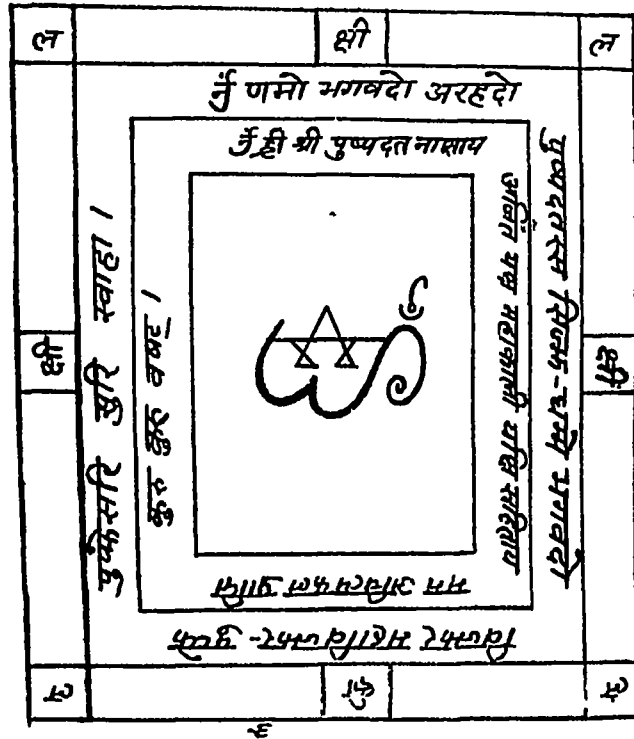 ल क्षी ल
र्नुं णमो भगवदो अरहदो
पुष्पदतस्स सिज्झ-धम्मे भगवदो
विज्झर महाविज्झर-पुप्फे
पुप्फेसरि सुरि स्वाहा ।
र्नुं ह्री श्री पुष्पदत नाथाय
अजित यक्ष महाकाली यक्षि सहिताय
मम अविघ्नफल प्राप्ति
कुरु कुरु वषट् ।
क्षी
क्षी
ल क्षी ल